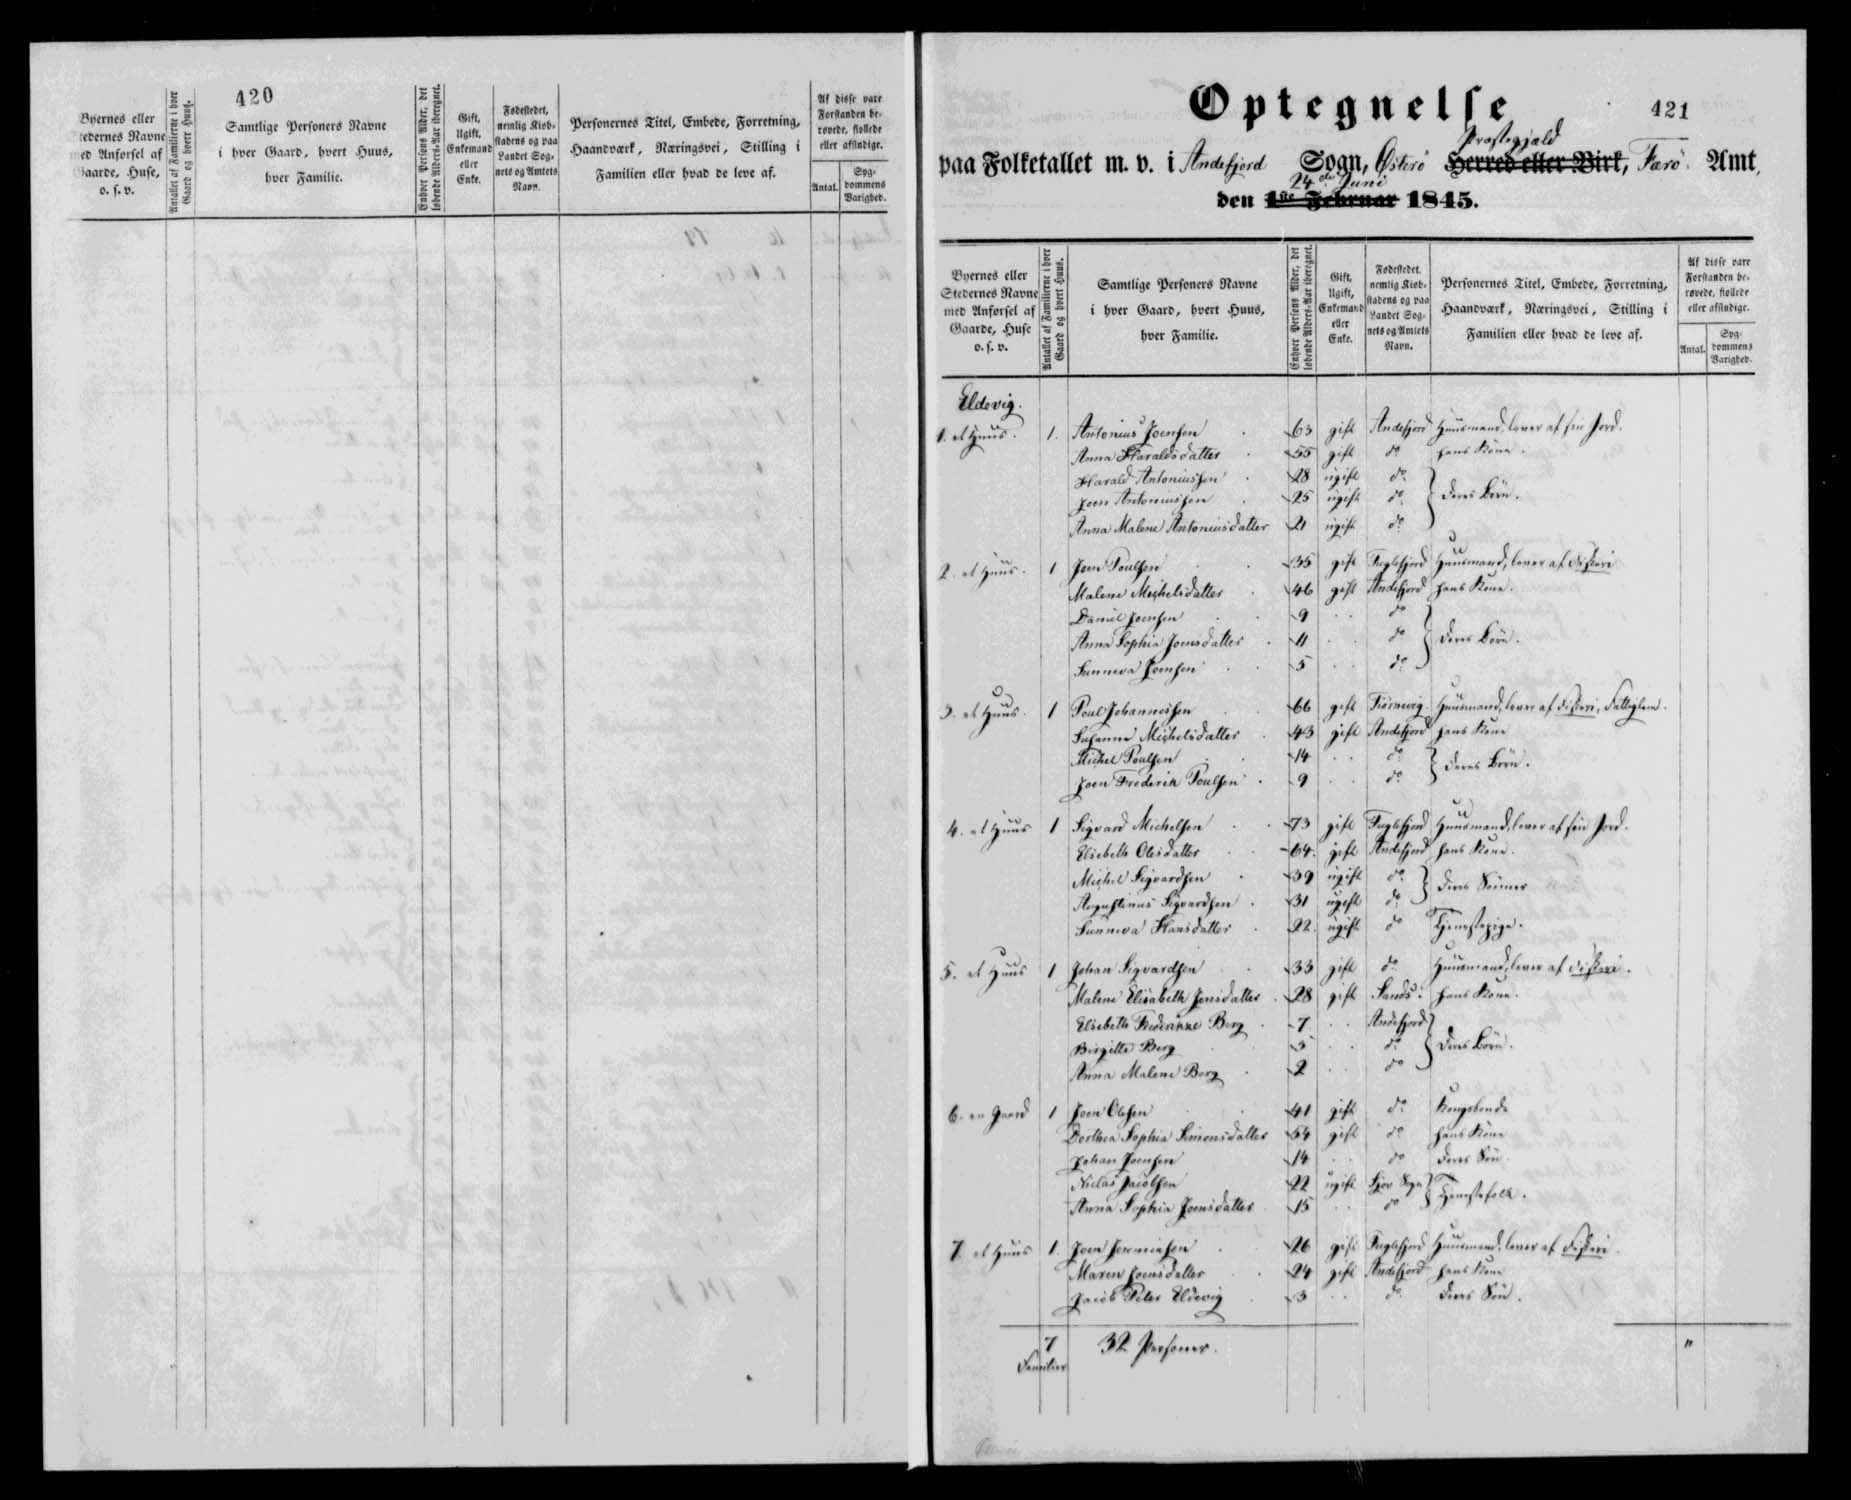 420
Byernes eller
Stedernes Navne
med Anførsel af
Gaarde, Huse,
o. s. v.
Antallet af Familierne i hver
Gaard og hvert Huus.
Samtlige Personers Navne
i hver Gaard, hvert Huus,
hver Familie.
Enhver Persons Alder, det
løbende Alders-Aar iberegnet.
Gift,
Ugift,
Enkemand
eller
Enke.
Fødestedet,
nemlig Kiøb-
stadens og paa
Landet Sog-
nets og Amtets
Navn.
Personernes Titel, Embede, Forretning,
Haandværk, Næringsvei, Stilling i
Familien eller hvad de leve af.
Af disse vare
Forstanden be-
røvede, fiollede
eller afsindige.
Antal.
Syg-
dommens
Varighed.
Optegnelse
421
Præstegjæld
paa Folketallet m. v. i Andefjord Sogn, Østerø Herred eller Birk, Færø Amt,
24de Juni
den 1ste Februar 1845.
Byernes eller
Stedernes Navne
med Anførsel af
Gaarde, Huse
o. s. v.
Antallet af Familierne i hver
Gaard og hvert Huus.
Samtlige Personers Navne
i hver Gaard, hvert Huus,
hver Familie.
Enhver Persons Alder, det
løbende Alders-Aar iberegnet.
Gift,
Ugift,
Enkemand
eller
Enke.
Fødestedet,
nemlig Kiøb-
stadens og paa
Landet Sog-
nets og Amtets
Navn.
Personernes Titel, Embede, Forretning,
Haandværk, Næringsvei, Stilling i
Familien eller hvad de leve af.
Af disse vare
Forstanden be-
røvede, fiollede
eller afsindige.
Antal.
Syg-
dommens
Varighed.
Eldevig.
1. et Huus. 1. Antonius Joensen 63 gift Andefjord Huusmand, lever af sin Jord.
Anna Haraldsdatter 55 gift do hans Kone.
Harald Antoniussen 28 ugift do
Joen Antoniussen 25 ugift do deres Børn.
Anna Malene Antoniusdatter 21 ugift do
2. et Huus. 1 Joen Poulsen 35 gift Fuglefjord Huusmand, lever af Fiskeri
Malene Michelsdatter 46 gift Andefjord hans Kone.
Daniel Joensen 9 do
Anna Sophia Joensdatter 11 do deres Børn.
Sunneva Joensen 5 do
3. et Huus. 1 Poul Johannessen 66 gift Tiørnevig Huusmand, lever af Fiskeri, Fattiglem.
Susanne Michelsdatter 43 gift Andefjord hans Kone
Michel Poulsen 14 do deres Børn.
Joen Frederik Poulsen 9 do
4. et Huus 1 Sigvard Michelsen 73 gift Fuglefjord Huusmand, lever af sin Jord.
Elsebeth Olesdatter 64 gift Andefjord hans Kone.
Michel Sigvardsen 39 ugift do deres Sønner
Augustinus Sigvardsen 31 ugift do
Sunneva Hansdatter 22 ugift do Tjenestepige.
5. et Huus 1 Johan Sigvardsen 33 gift do Huusmand, lever af Fiskeri.
Malene Elisabeth Jensdatter 28 gift Sands. hans Kone.
Elsebeth Frederikke Berg 7 Andefjord
Birgitte Berg 5 do deres Børn.
Anna Malene Berg 2 do
6. en Gaard 1 Joen Olesen 41 gift do Kongsbonde
Dorthea Sophia Simonsdatter 54 gift do hans Kone
Johan Joensen 14 do deres Søn
Niclas Jacobsen 22 ugift Sogn Tjenestefolk.
Anna Sophia Joensdatter 15 do
7. et Huus 1. Joen Joensen 26 gift Fuglefjord Huusmand, lever af Fiskeri.
Maren Joensdatter 24 gift Andefjord hans Kone
Jacob Peter Eldevig 3 do deres Søn.
7 32 Personer. "
Familier